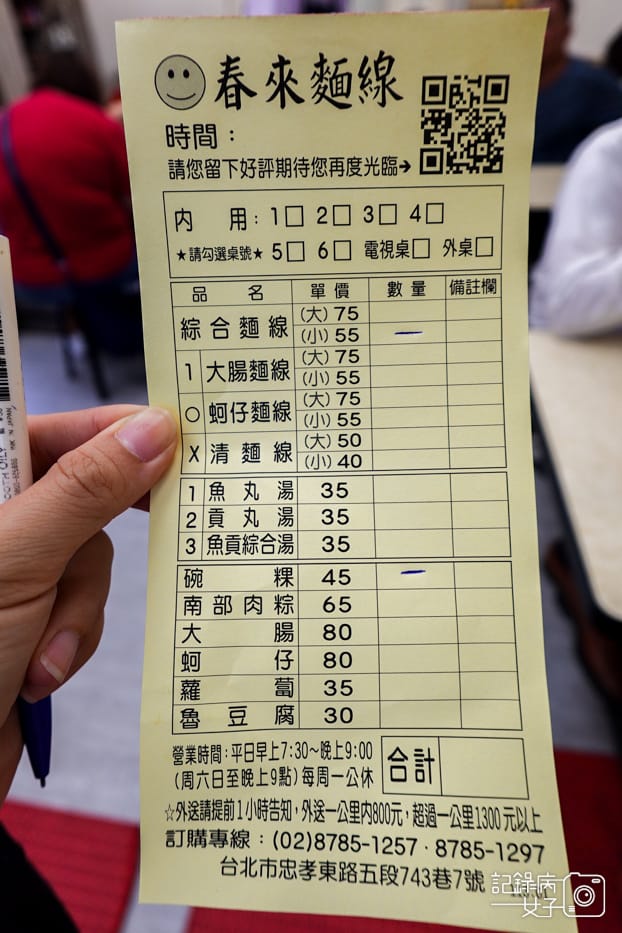 春來麵線
時間：
請您留下好評期待您再度光臨→
內 用：1□ 2□ 3□ 4□
★請勾選桌號★ 5□ 6□ 電視桌□ 外桌□
品名 單價 數量 備註欄
綜合麵線 (大) 75
(小) 55 一
1 大腸麵線 (大) 75
(小) 55
○ 蚵仔麵線 (大) 75
(小) 55
X 清麵線 (大) 50
(小) 40
1 魚丸湯 35
2 貢丸湯 35
3 魚貢綜合湯 35
碗粿 45 一
南部肉粽 65
大腸 80
蚵仔 80
蘿蔔 35
魯豆腐 30
營業時間：平日早上7:30～晚上9:00
(周六日至晚上9點) 每周一公休
合計
☆外送請提前1小時告知，外送一公里內800元，超過一公里1300元以上
訂購專線：(02)8785-1257．8785-1297
台北市忠孝東路五段743巷7號
記錄病
女子